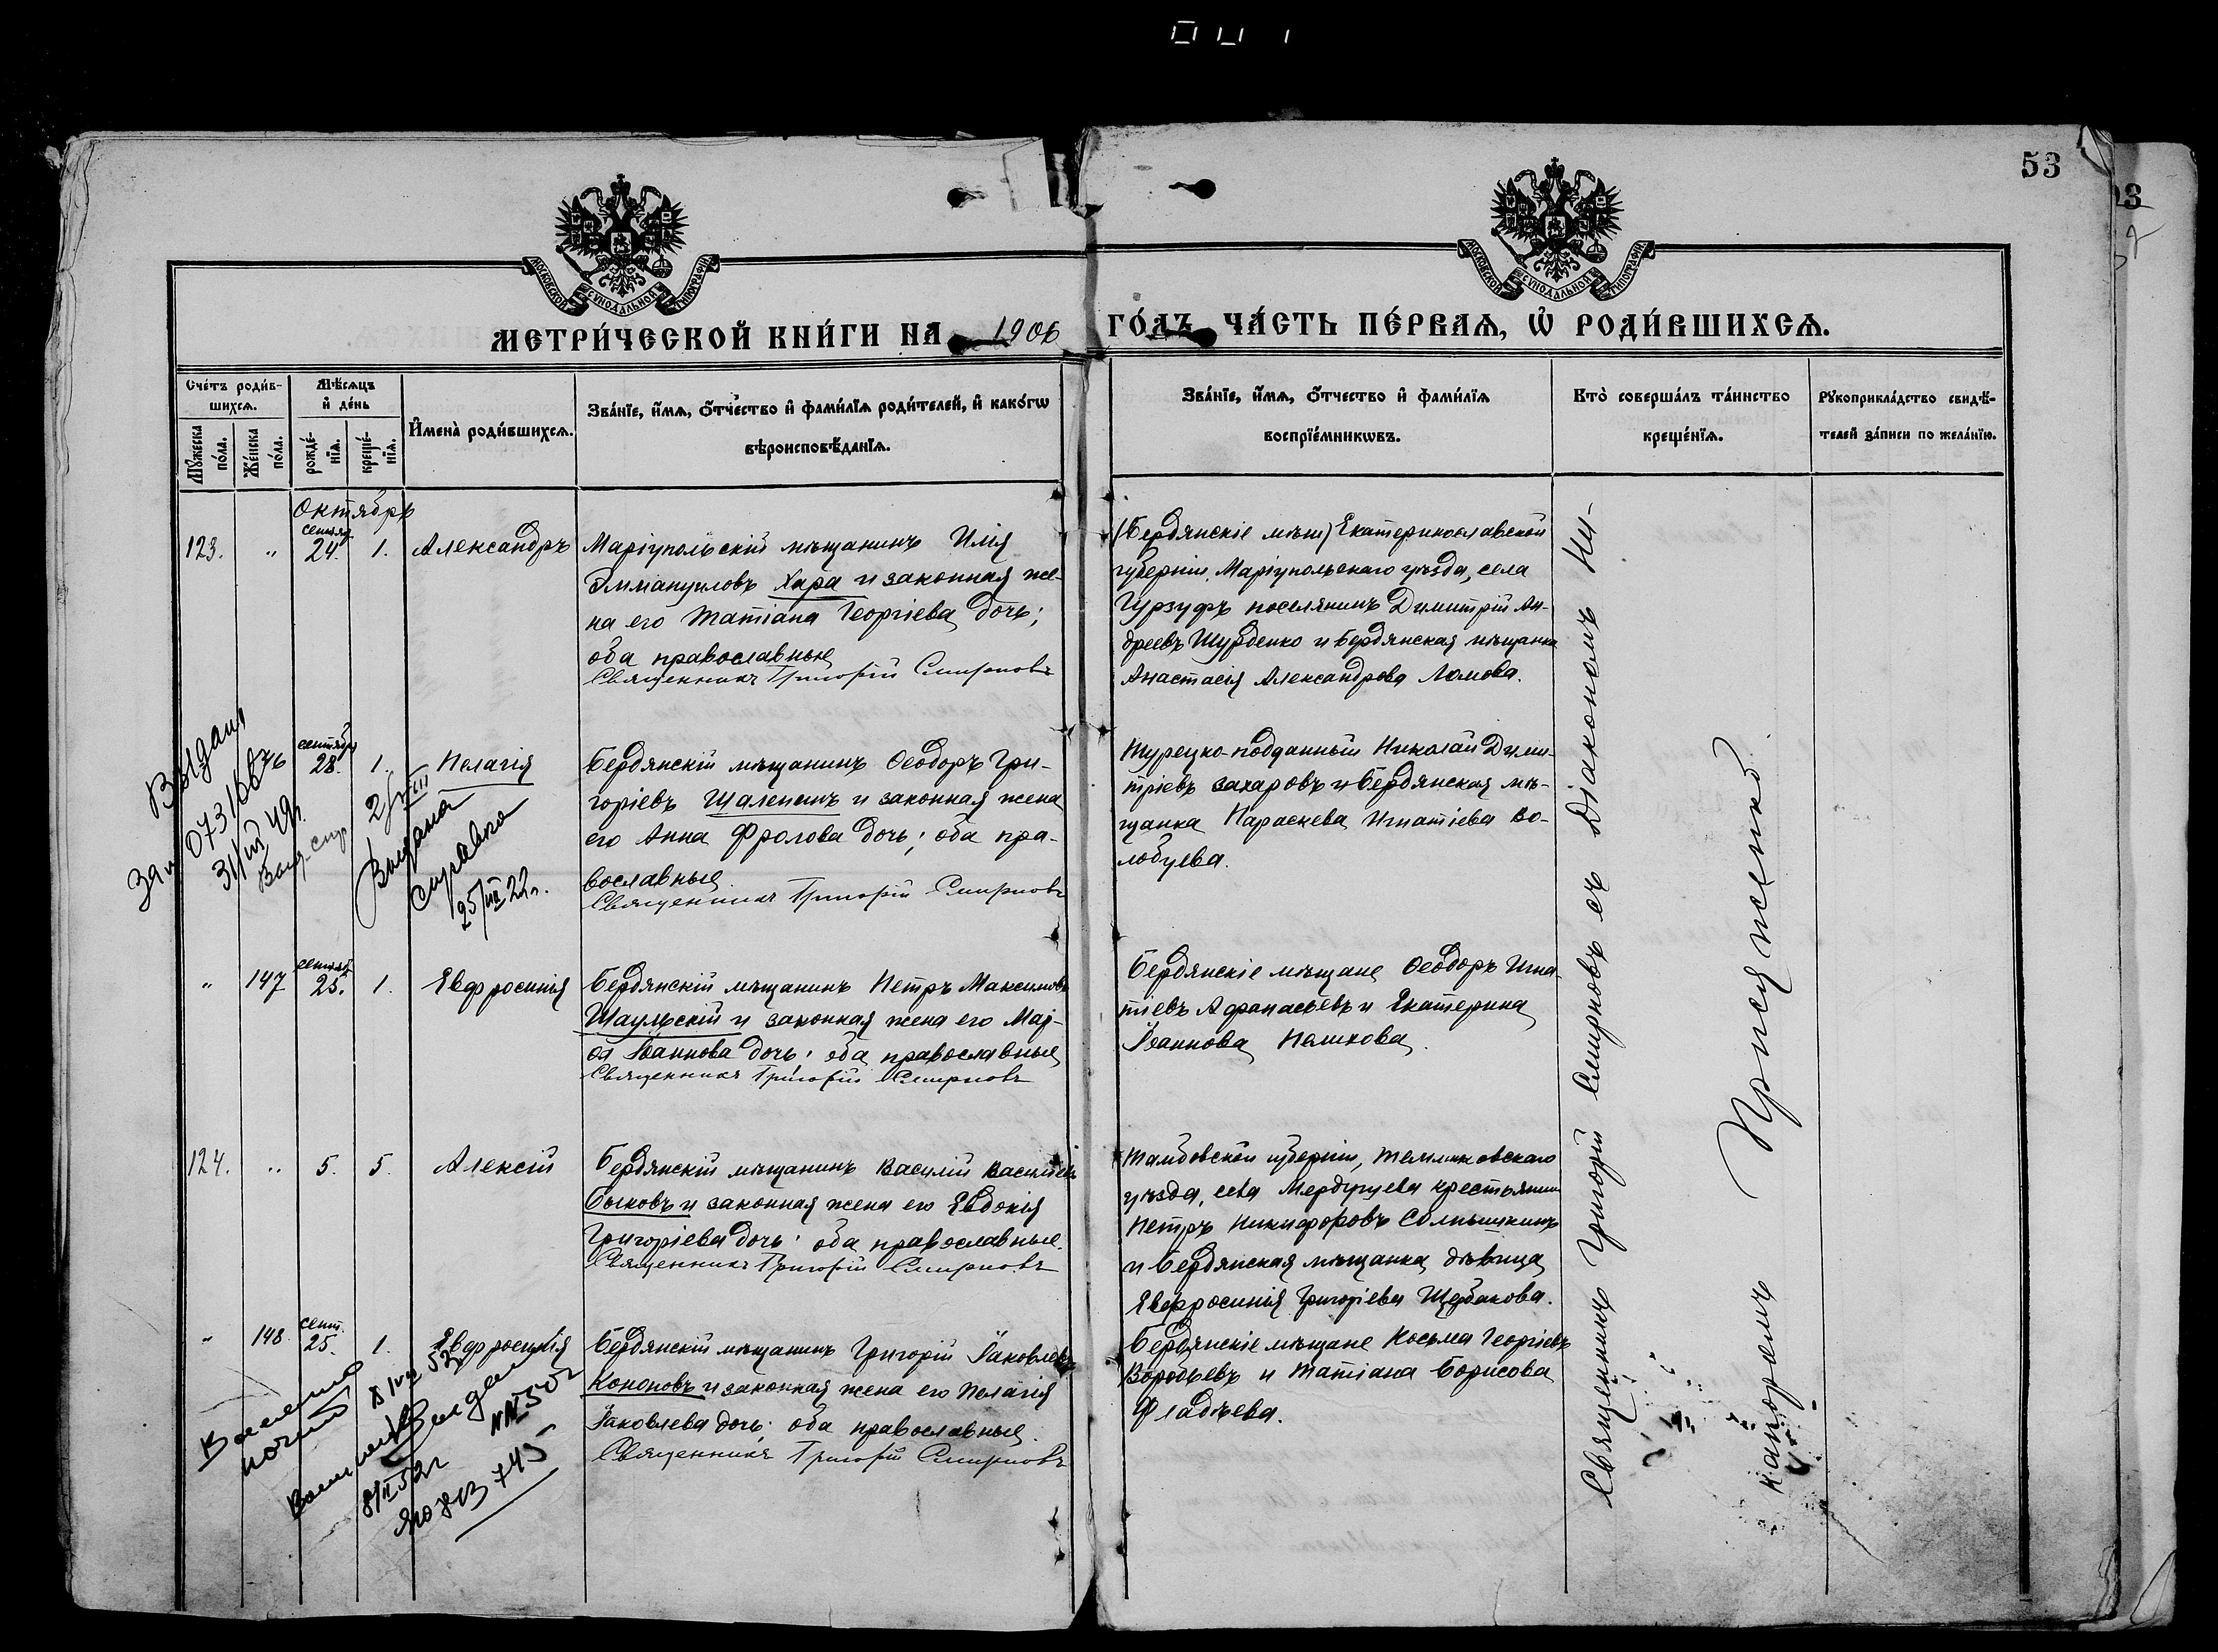 53
МОСКОВСКОЙ СѴНОДАЛЬНОЙ ТИПОГРАФІИ
МОСКОВСКОЙ СѴНОДАЛЬНОЙ ТИПОГРАФІИ
МЕТРИ́ЧЕСКОЙ КНИ́ГИ НА 1906 ГО́ДЪ ЧА́СТЬ ПЕ́РВАЯ, Ѡ҆ РОДИ́ВШИХСѦ.
Сче́тъ роди́в-
шихсѧ.
Мѣ́сѧцъ
и҆ де́нь
И҆мена̀ роди́вшихсѧ.
Зва́нїе, и҆́мѧ, ѻ҆́тчество и҆ фами́лїѧ роди́телей, и҆ како́гѡ
вѣроисповѣ́данїѧ.
Зва́нїе, и҆́мѧ, ѻ҆́тчество и҆ фами́лїѧ
воспрїе́мникѡвъ.
Кто̀ соверша́лъ та́инство
креще́нїѧ.
Рꙋкоприкла́дство свидѣ́-
телей за́писи по жела́нїю.
Мꙋ́жеска
по́ла.
Же́нска
по́ла.
рожде́-
нїѧ.
креще́-
нїѧ.
Октябрь
сентяб.
123. " 24. 1. Александръ
Маріупольскій мѣщанинъ Илія
Эммануиловъ Хара и законная же-
на его Татіана Георгіева дочь;
оба православные
Священникъ Григорій Смирновъ
(Бердянскіе мѣщ) Екатеринославской
губерніи, Маріупольскаго уѣзда, села
Гурзуфъ поселянинъ Димитрій Ан-
дреевъ Шурденко и Бердянская мѣщанка
Анастасія Александрова Ломова.
сентябр
146 28. 1. Пелагія
Бердянскій мѣщанинъ Ѳеодоръ Гри-
горіевъ Щаленинъ и законная жена
его Анна Фролова дочь; оба пра-
вославные
Священникъ Григорій Смирновъ
Турецко-подданный Николай Дими-
тріевъ Захаровъ и Бердянская мѣ-
щанка Параскева Игнатіева Во-
лобуева.
Выдан
31/III 49г.
Выдана
справка
25/III 22г.
сентяб
" 147 25. 1. Евфросинія
Бердянскій мѣщанинъ Петръ Максимовъ
Шаульскій и законная жена его Марі-
оя Іоаннова дочь; оба православные
Священникъ Григорій Смирновъ
Бердянскіе мѣщане Ѳеодоръ Игна
тіевъ Афанасьевъ и Екатерина
Іоаннова Пешкова.
124. " 5. 5. Алексій
Бердянскій мѣщанинъ Василій Васильевъ
Быковъ и законная жена его Евдокія
Григоріева дочь; оба православные.
Священникъ Григорій Смирновъ
Тамбовской губерніи, Темниковскаго
уѣзда, села крестьянинъ
Петръ Никифоровъ Солнышкинъ
и Бердянская мѣщанка дѣвица
Евфросинія Григоріева Щербакова.
сент.
" 148. 25. 1. Евфросинія
Бердянскій мѣщанинъ Григорій Іаковлевъ
Кононовъ и законная жена его Пелагія
Іаковлева дочь; оба православные.
Священникъ Григорій Смирновъ
Бердянскіе мѣщане Косьма Георгіевъ
Воробьевъ и Татіана Борисова
Фладѣева.
Священникъ Григорій Смирновъ съ Діакономъ Ни-
каноромъ